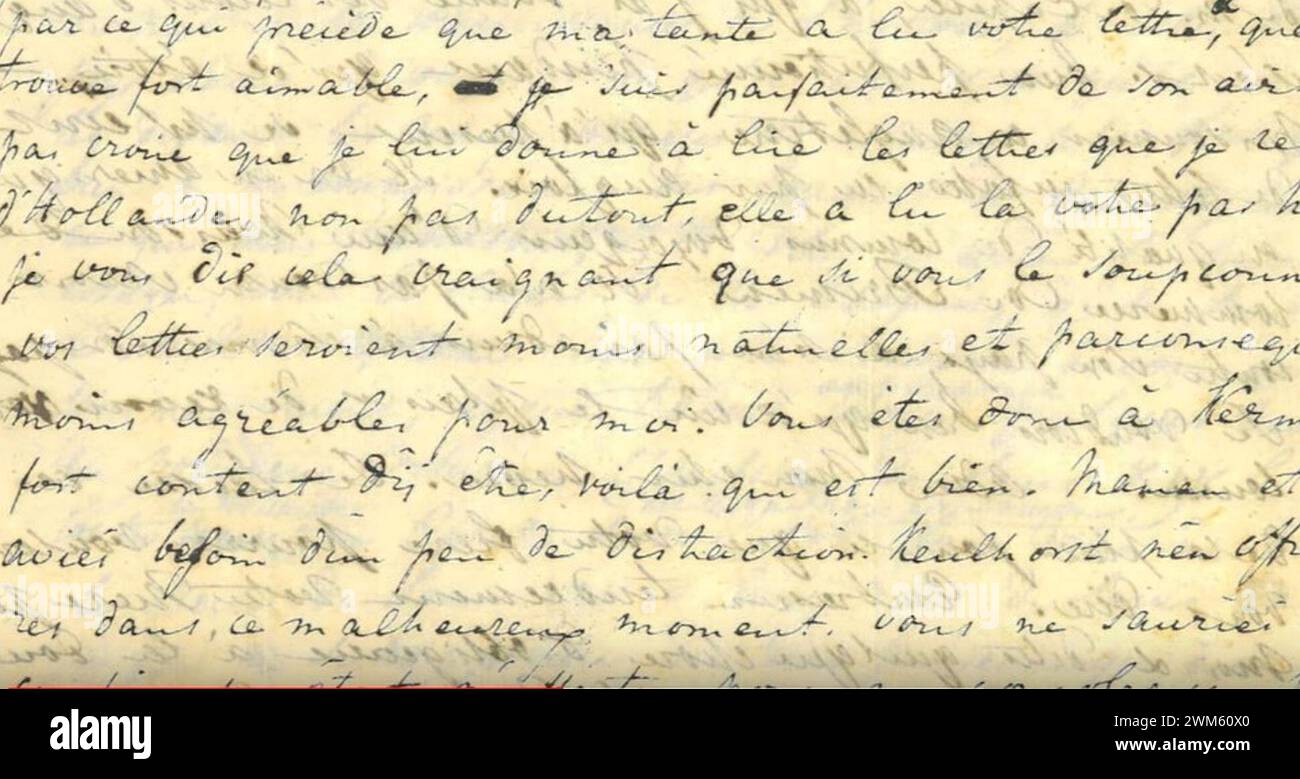 par ce qui précède que ma tante a lu votre lettre, que
trouve fort aimable, je suis parfaitement de son avi
pas croire que je lui donne à lire les lettres que je re
d'Hollande, non pas dutout, elle a lu la votre par h
je vous dis cela craignant que si vous le soupconn
vos lettres seroient moins naturelles et parconsequ
moins agréables pour moi. Vous êtes donc à Kerm
fort content d'ÿ être, voilà qui est bien. Maman et
aviés besoin d'un peu de distraction. Keulhorst n'en offr
res dans ce malheureux moment. Vous ne sauriés
alamy
Image ID: 2WM60X0
www.alamy.com